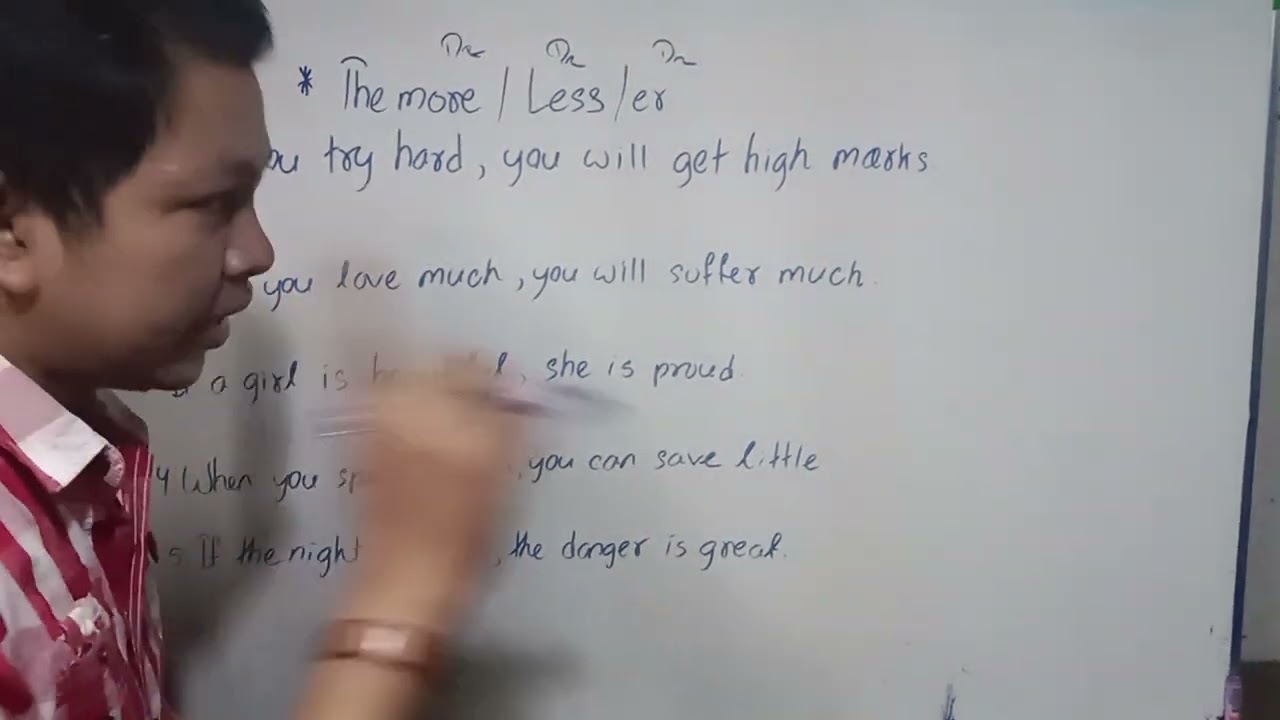 * The more / Less / er
try hard, you will get high marks
you love much, you will suffer much.
a girl is she is proud
4 When you you can save little
5 If the night , the danger is great.